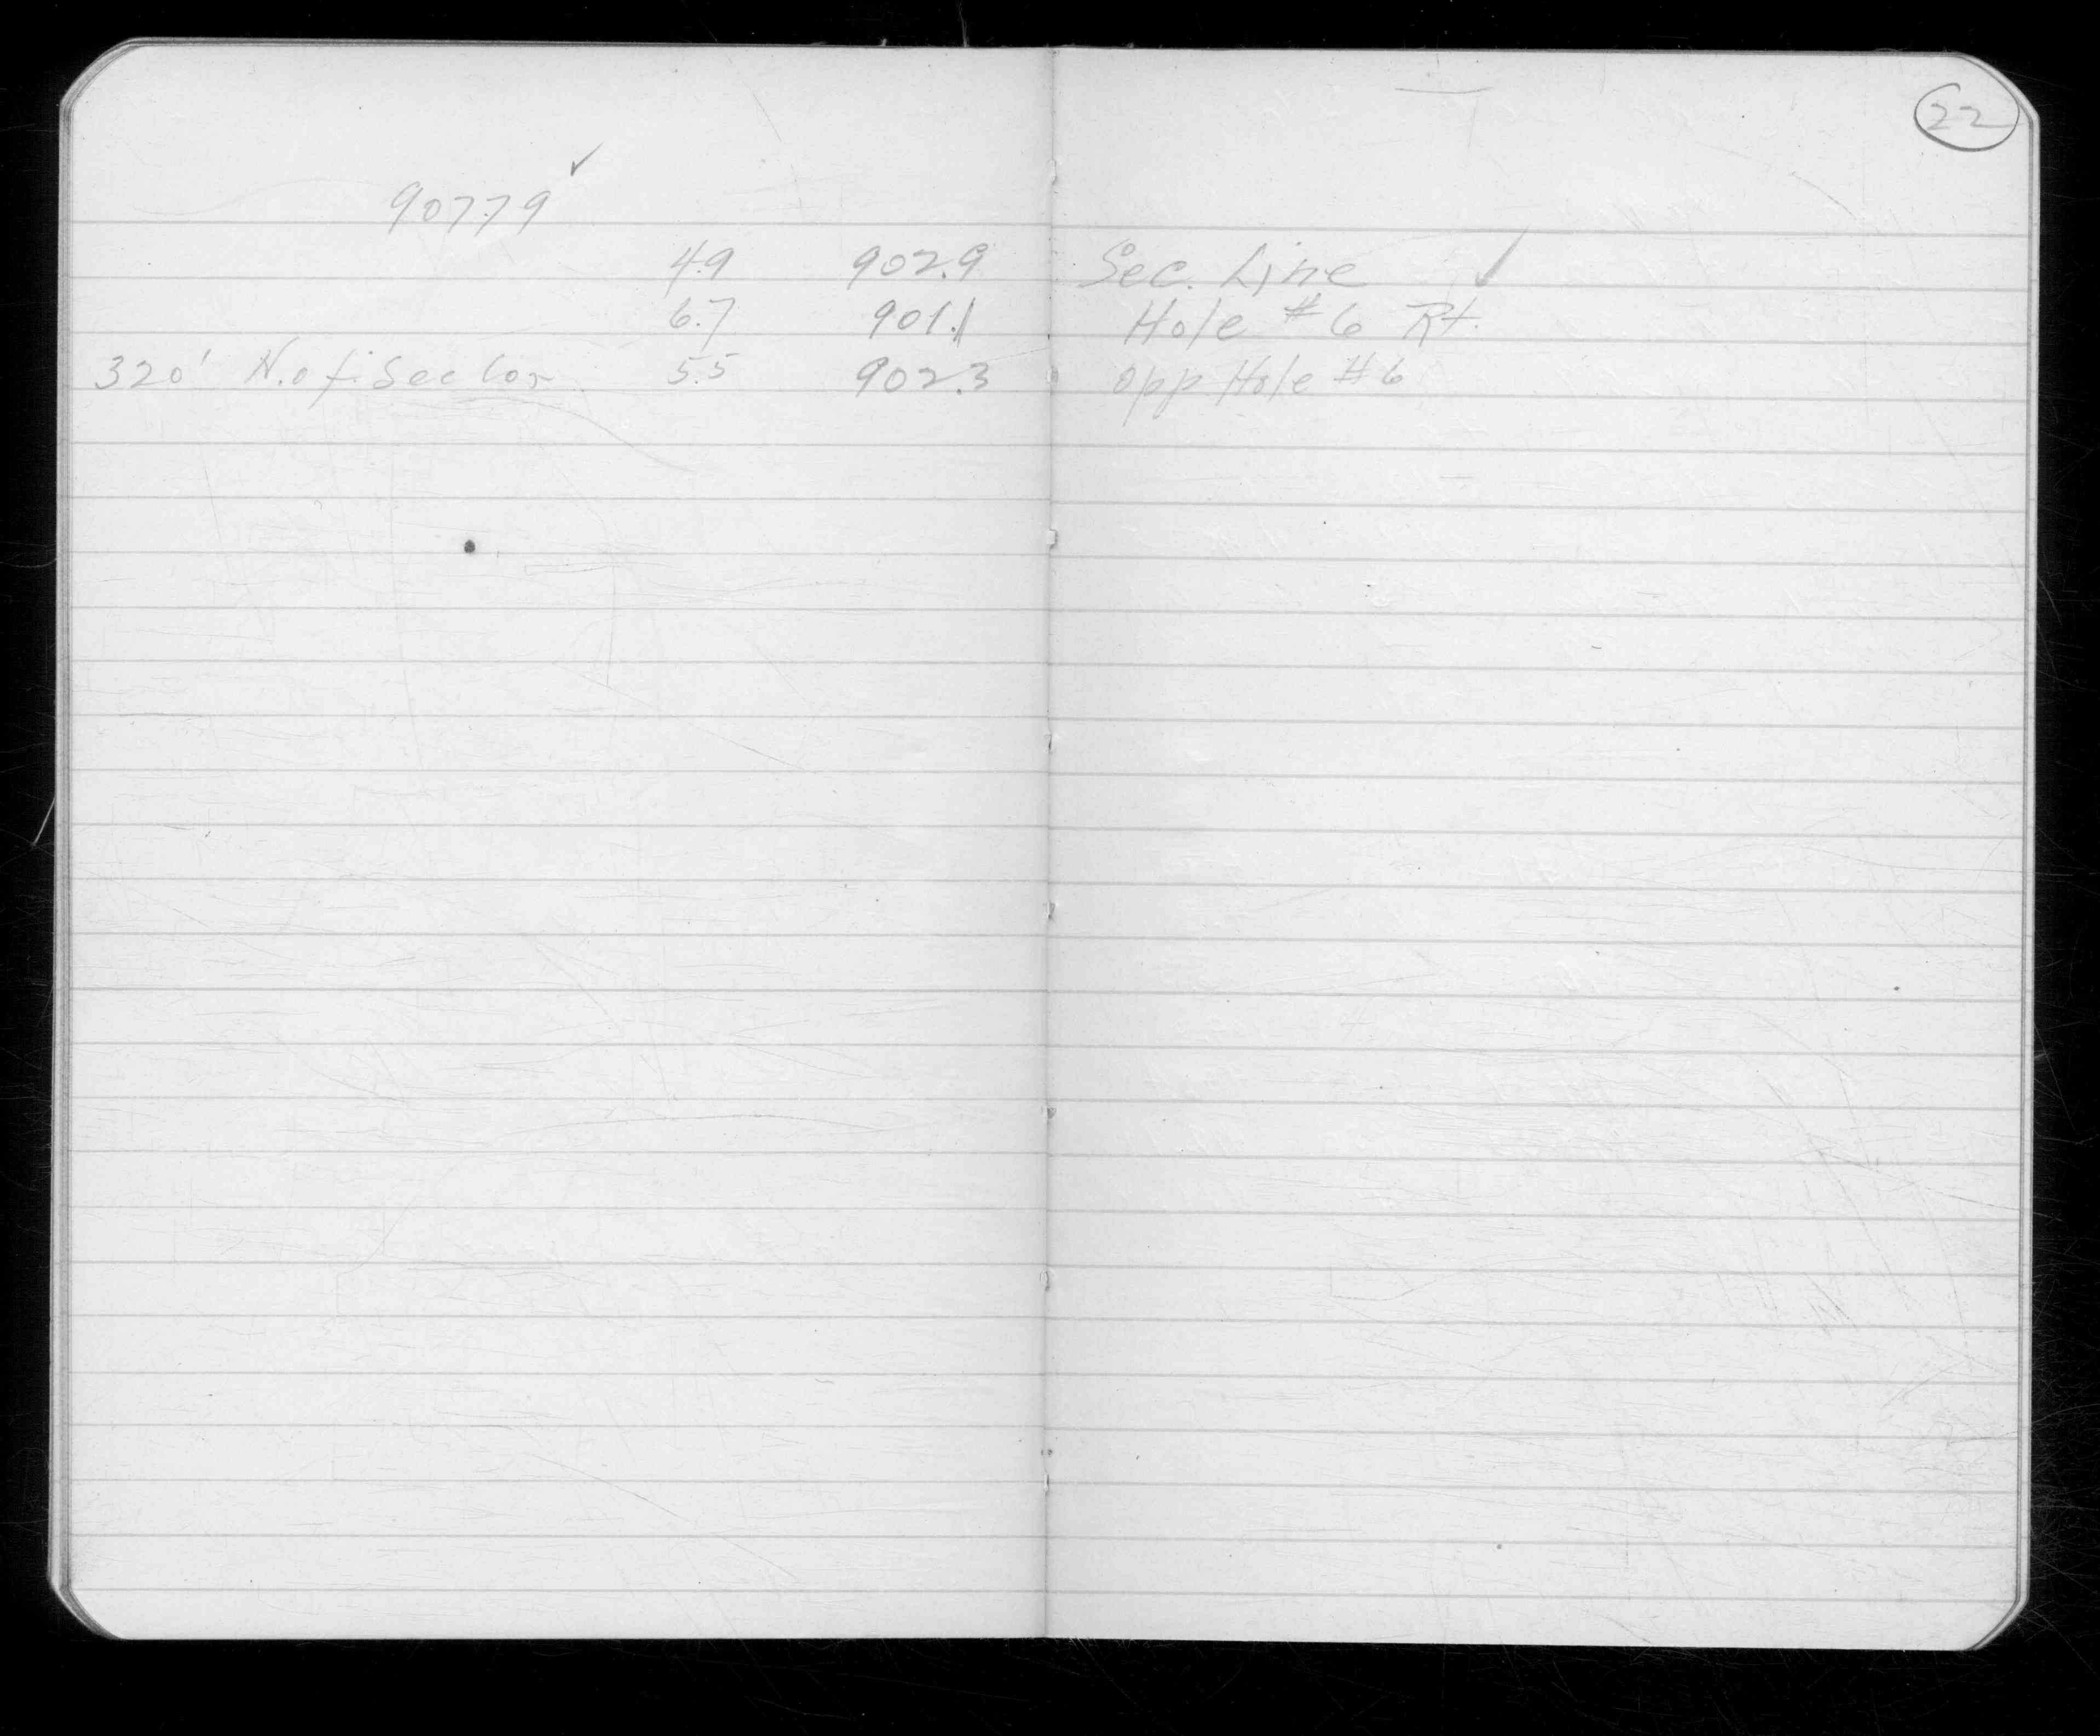 22
907.79 ✓
4.9 902.9 Sec. Line ✓
6.7 901.1 Hole #6 Rt.
320' N. of Sec Cor 5.5 902.3 opp Hole #6